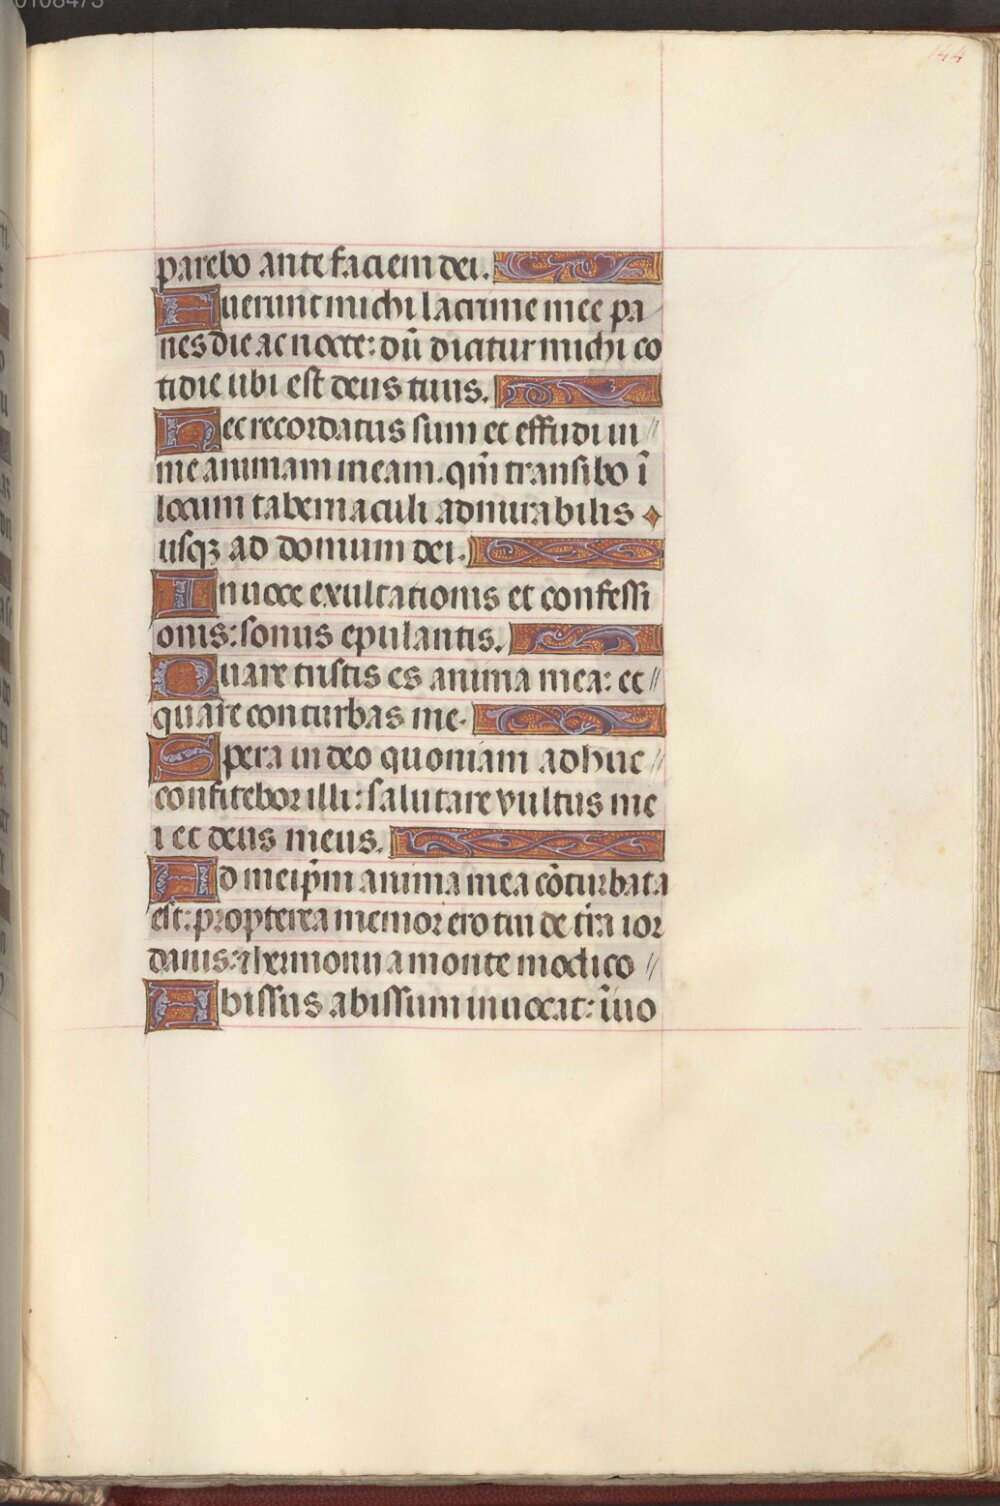 0108473
144
parebo ante faciem dei.
Fuerunt michi lacrime mee pa
nes die ac nocte: dū dicitur michi co
tidie ubi est deus tuus.
Hec recordatus sum et effudi in
me animam meam. qm̄ transibo ī
locum tabernaculi admirabilis
usqꝫ ad domum dei.
In uoce exultationis et confessi
onis: sonus epulantis.
Quare tristis es anima mea: et
quare conturbas me.
Spera in deo quoniam adhuc
confitebor illi: salutare vultus me
i et deus meus.
Ad meip̄m anima mea cōturbata
est: propterea memor ero tui de tr̄a ior
danis: ⁊ hermonii a monte modico
Abissus abissum inuocat: ī uo